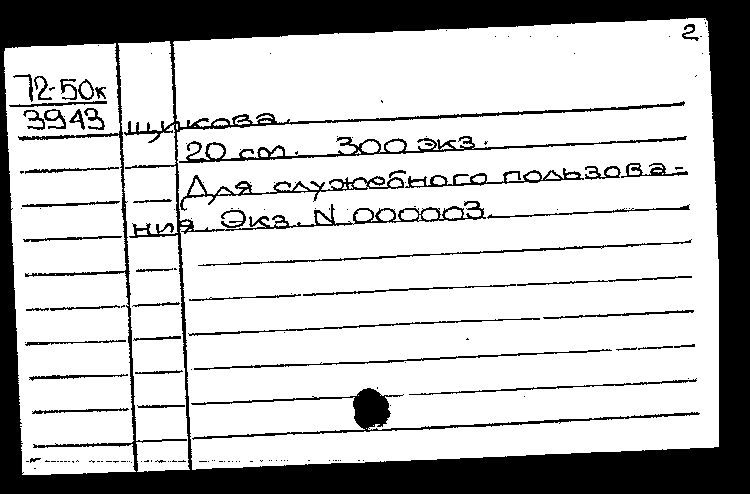 2
72-50к
3943
щикова.
20 сл. 300 экз.
Для служебного пользова-
ния. Экз. N 000003.